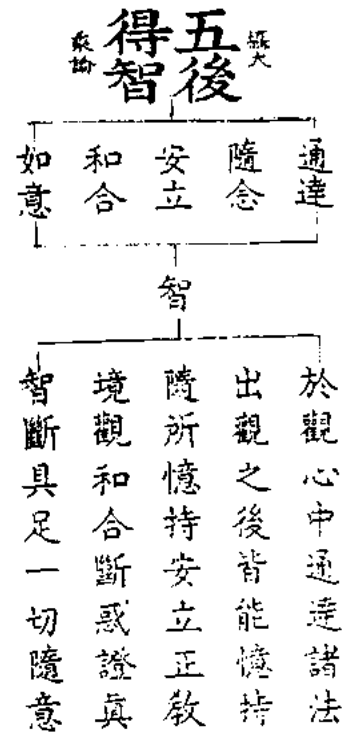 攝大
五後
得智
乘論
通達
隨念
安立
和合
如意
智
於觀心中通達諸法
出觀之後皆能憶持
隨所憶持安立正教
境觀和合斷惑證眞
智斷具足一切隨意